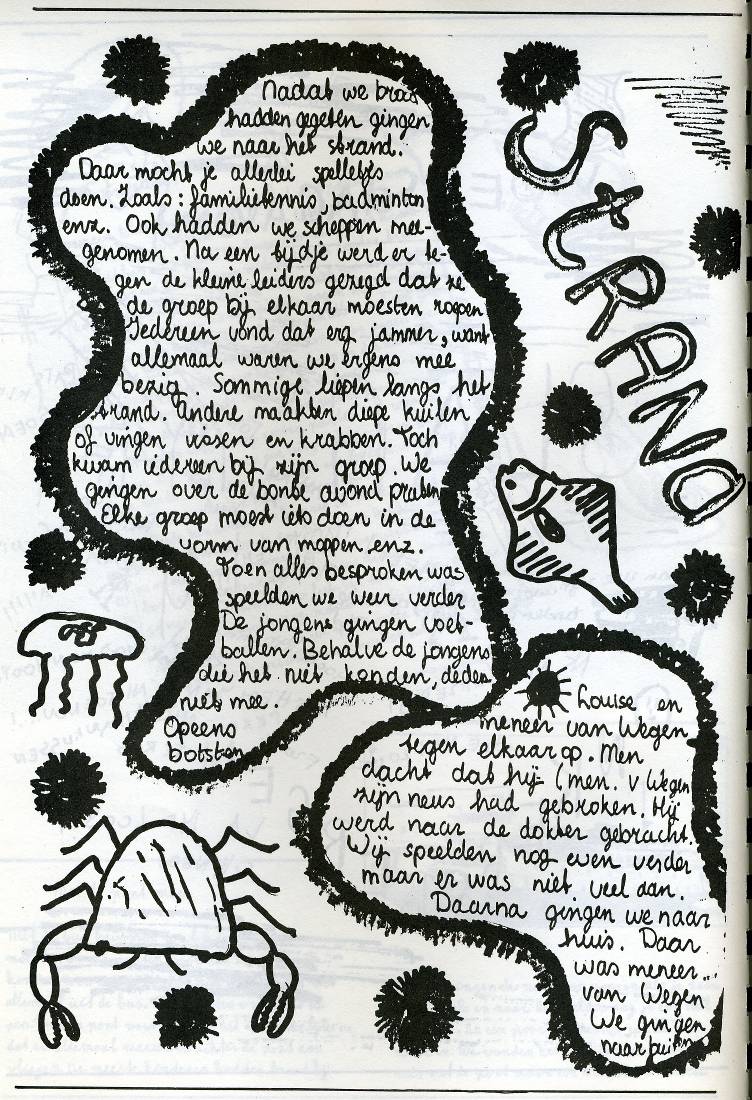 StRAND
Nadat we brood
hadden gegeten gingen
we naar het strand.
Daar mocht je allerlei spelletjes
doen. Zoals: familietennis, badminton
enz. Ook hadden we scheppen mee-
genomen. Na een tijdje werd er te-
gen de kleine leiders gezegd dat ze
de groep bij elkaar moesten roepen
Iedereen vond dat erg jammer, want
allemaal waren we ergens mee
bezig. Sommige liepen langs het
strand. Andere maakten diepe kuilen
of vingen vissen en krabben. Toch
kwam iedereen bij zijn groep. We
gingen over de bonte avond praten
Elke groep moest iets doen in de
vorm van moppen enz.
Toen alles besproken was
speelden we weer verder
De jongens gingen voet-
ballen. Behalve de jongens
die het niet konden, deden
niet mee.
Opeens
botsten
Louise en
meneer van Wegen
tegen elkaar op. Men
dacht dat hij (men. v Wegen
zijn neus had gebroken. Hij
werd naar de dokter gebracht.
Wij speelden nog even verder
maar er was niet veel aan.
Daarna gingen we naar
huis. Daar
was meneer...
van Wegen
We gingen
naar